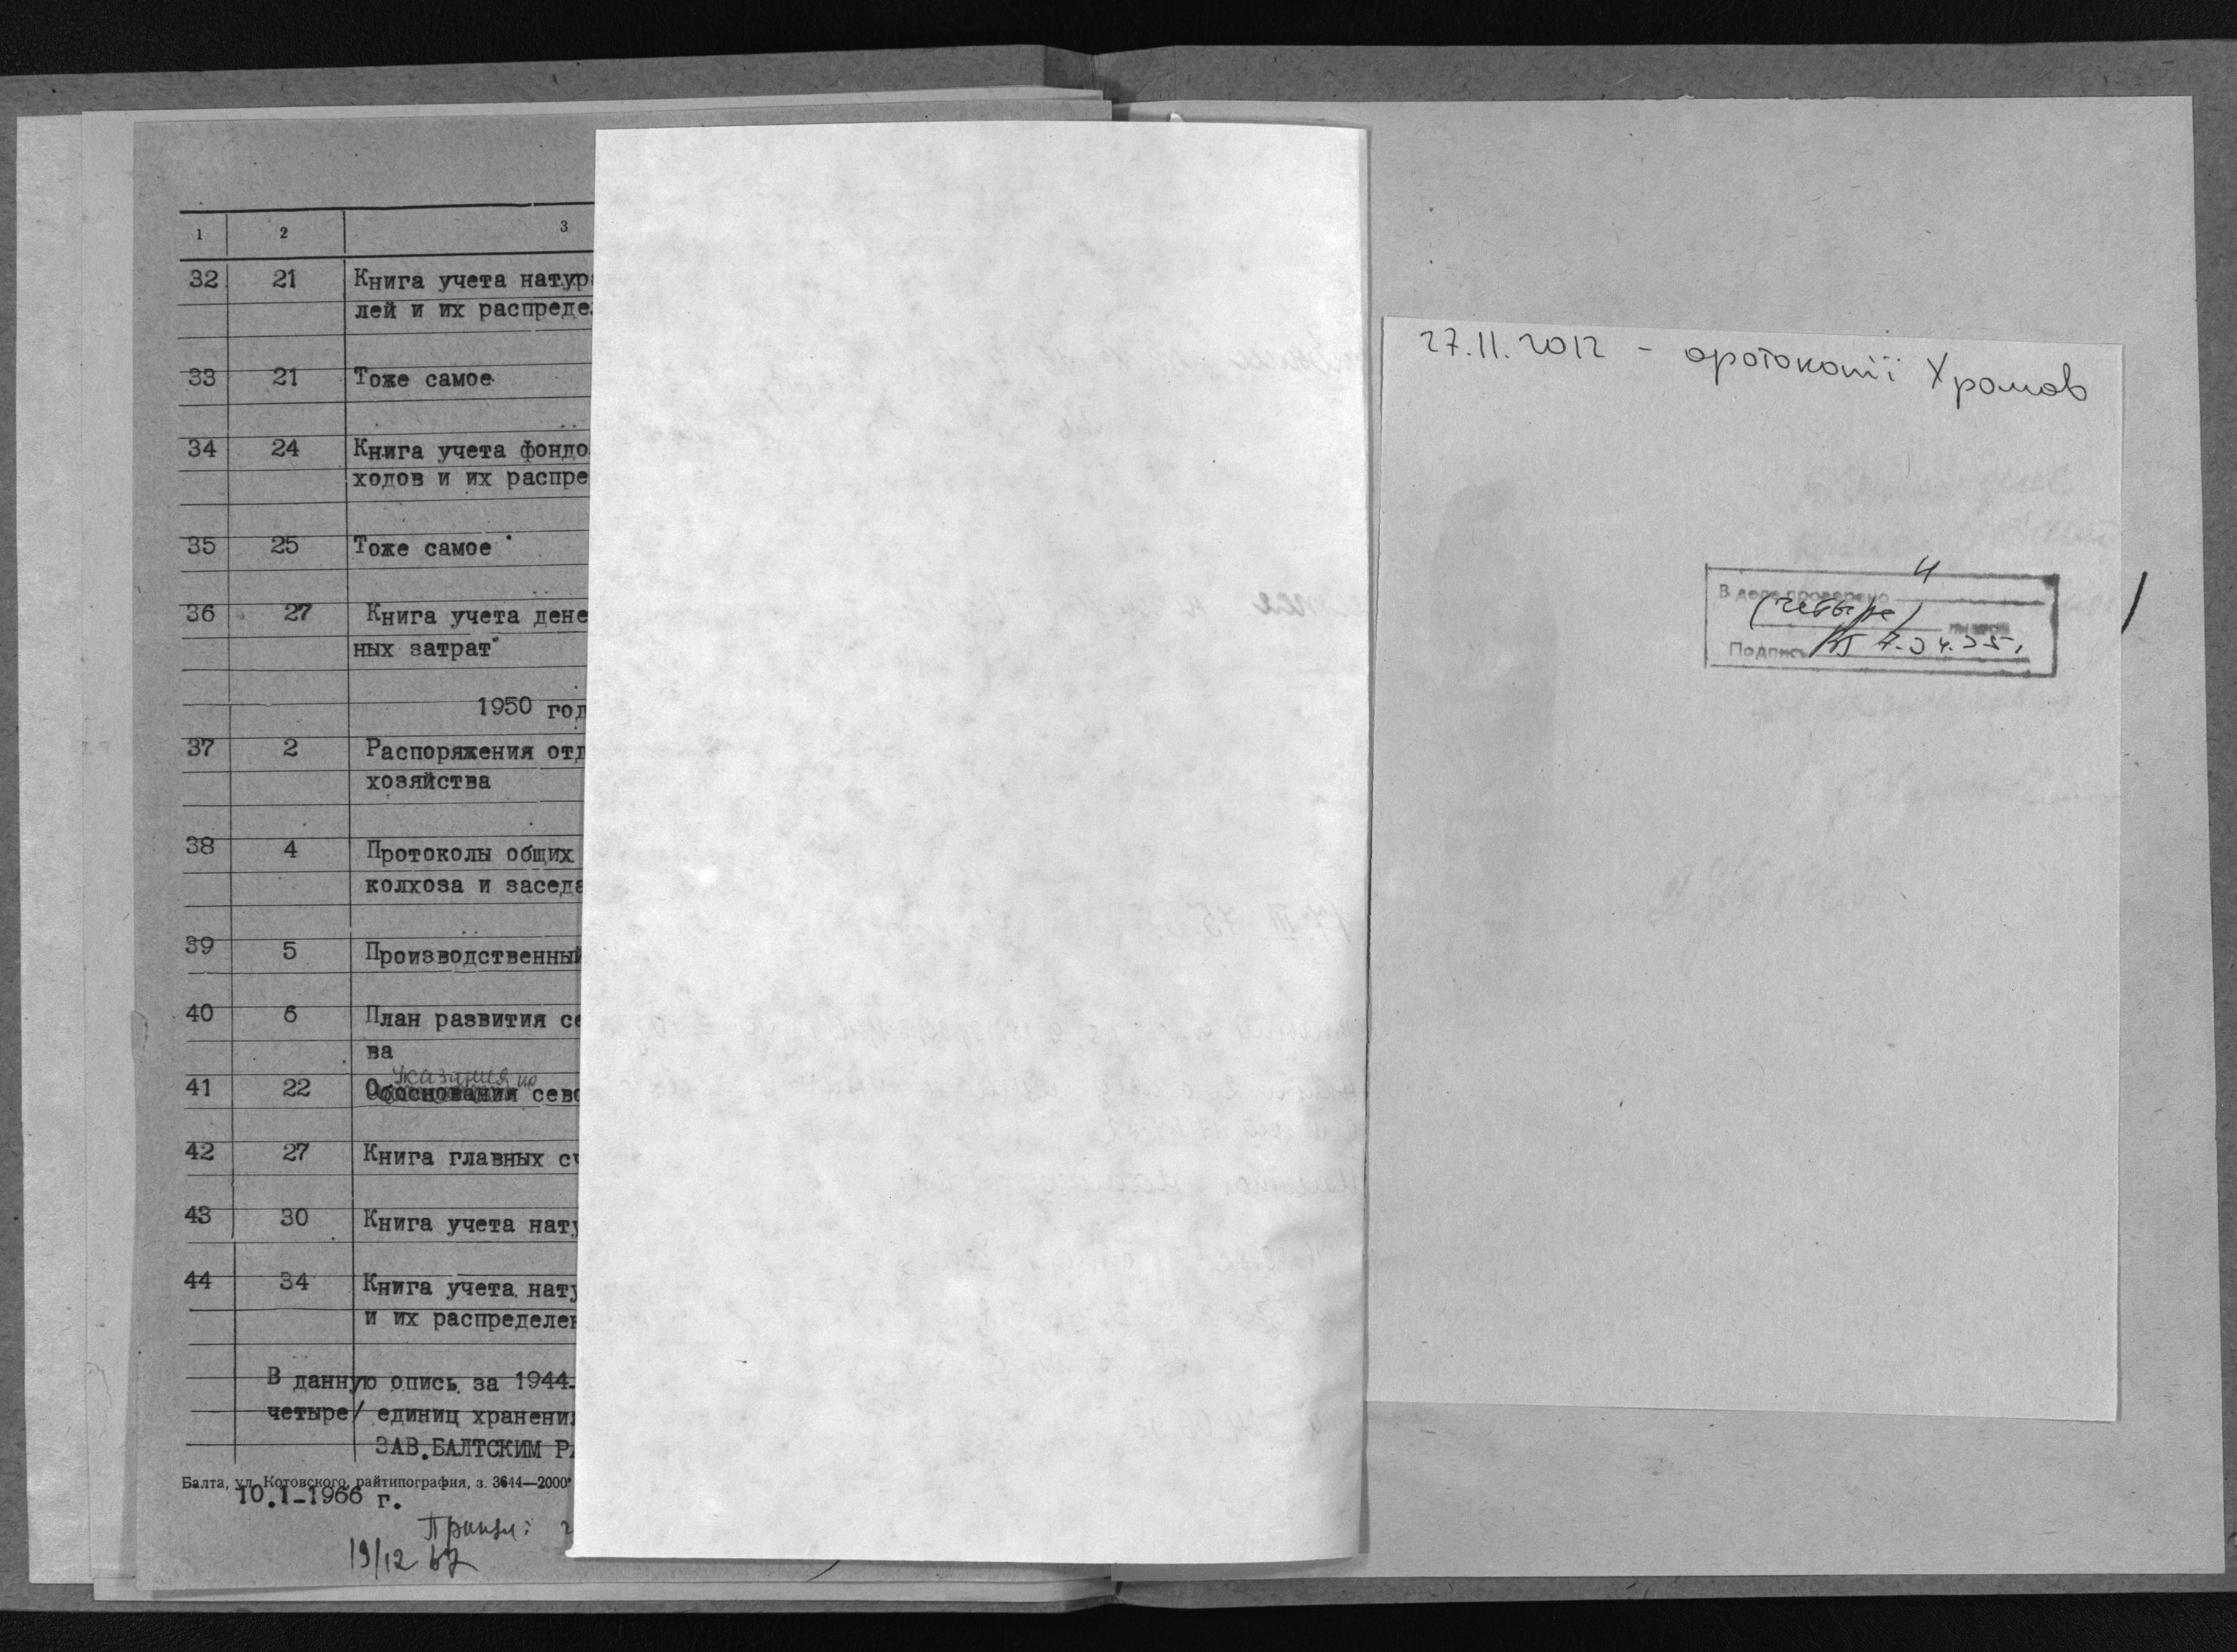 1 2 3
32 21 Книга учета натур
лей и их распреде
33 21 Тоже самое
34 24 Книга учета фондо
ходов и их распре
35 25 Тоже самое
36 27 Книга учета дене
ных затрат
1950 год
37 2 Распоряжения отд
хозяйства
38 4 Протоколы общих
колхоза и заседа
39 5 Производственный
40 6 План развития се
ва
Указания по
41 22 Обоснования сево
42 27 Книга главных сч
43 30 Книга учета нату
44 34 Книга учета нату
и их распределен
В данную опись за 1944-
четыре/ единиц хранени
ЗАВ.БАЛТСКИМ Р
Балта, ул. Котовского, райтипография, з. 3644—2000
10.1-1966 г.
19/12 67
27.11.2012 - фотокопії Храмов
4
В деле проверено
(четыре)
Подпись